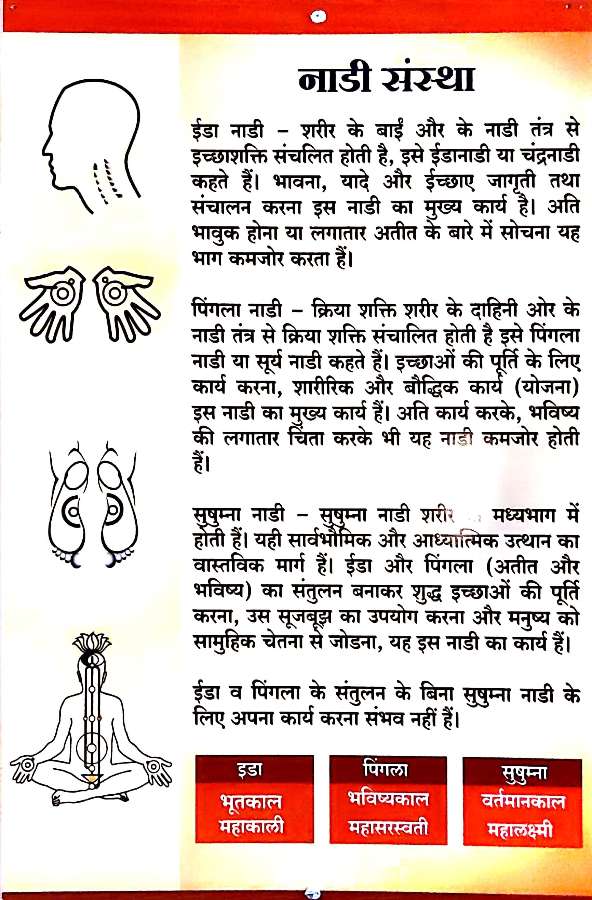 नाडी संस्था
ईडा नाडी – शरीर के बाईं और के नाडी तंत्र से
इच्छाशक्ति संचलित होती है, इसे ईडानाडी या चंद्रनाडी
कहते हैं। भावना, यादे और ईच्छाए जागृती तथा
संचालन करना इस नाडी का मुख्य कार्य है। अति
भावुक होना या लगातार अतीत के बारे में सोचना यह
भाग कमजोर करता हैं।
पिंगला नाडी – क्रिया शक्ति शरीर के दाहिनी ओर के
नाडी तंत्र से क्रिया शक्ति संचालित होती है इसे पिंगला
नाडी या सूर्य नाडी कहते हैं। इच्छाओं की पूर्ति के लिए
कार्य करना, शारीरिक और बौद्धिक कार्य (योजना)
इस नाडी का मुख्य कार्य हैं। अति कार्य करके, भविष्य
की लगातार चिंता करके भी यह नाडी कमजोर होती
हैं।
सुषुम्ना नाडी – सुषुम्ना नाडी शरीर मध्यभाग में
होती हैं। यही सार्वभौमिक और आध्यात्मिक उत्थान का
वास्तविक मार्ग हैं। ईडा और पिंगला (अतीत और
भविष्य) का संतुलन बनाकर शुद्ध इच्छाओं की पूर्ति
करना, उस सूजबूझ का उपयोग करना और मनुष्य को
सामुहिक चेतना से जोडना, यह इस नाडी का कार्य हैं।
ईडा व पिंगला के संतुलन के बिना सुषुम्ना नाडी के
लिए अपना कार्य करना संभव नहीं हैं।
इडा
भूतकाल
महाकाली
पिंगला
भविष्यकाल
महासरस्वती
सुषुम्ना
वर्तमानकाल
महालक्ष्मी